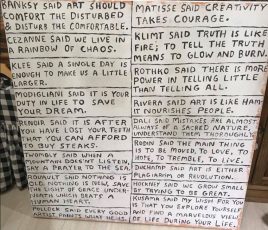 BANKSY SAID ART SHOULD
COMFORT THE DISTURBED
& DISTURB THE COMFORTABLE.
CEZANNE SAID WE LIVE IN
A RAINBOW OF CHAOS.
KLEE SAID A SINGLE DAY IS
ENOUGH TO MAKE US A LITTLE
LARGER.
MODIGLIANI SAID IT IS YOUR
DUTY IN LIFE TO SAVE
YOUR DREAM.
RENOIR SAID IT IS AFTER
YOU HAVE LOST YOUR TEETH
THAT YOU CAN AFFORD
TO BUY STEAKS.
TWOMBLY SAID WHEN A
MOUNTAIN DOESN'T LISTEN,
SAY A PRAYER TO THE SEA.
ROUAULT SAID NOTHING IS
OLD, NOTHING IS NEW, SAVE
THE LIGHT OF GRACE UNDER-
NEATH WHICH BEATS A
HUMAN HEART.
POLLOCK SAID EVERY GOOD
ARTIST PAINTS WHAT HE IS.
MATISSE SAID CREATIVITY
TAKES COURAGE.
KLIMT SAID TRUTH IS LIKE
FIRE; TO TELL THE TRUTH
MEANS TO GLOW AND BURN.
ROTHKO SAID THERE IS MORE
POWER IN TELLING LITTLE
THAN TELLING ALL.
RIVERA SAID ART IS LIKE HAM-
IT NOURISHES PEOPLE.
DALI SAID MISTAKES ARE ALMOST
ALWAYS OF A SACRED NATURE,
UNDERSTAND THEM THOROUGHLY.
RODIN SAID THE MAIN THING
IS TO BE MOVED, TO LOVE, TO
HOPE, TO TREMBLE, TO LIVE.
DUCHAMP SAID ART IS EITHER
PLAGIARISM OR REVOLUTION.
HOCKNEY SAID WE GROW SMALL
BY TRYING TO BE GREAT.
KUSAMA SAID MY WISH FOR YOU
IS THAT YOU EXPLORE YOURSELF
AND FIND A MARVELOUS VIEW
OF LIFE DURING YOUR LIFE.